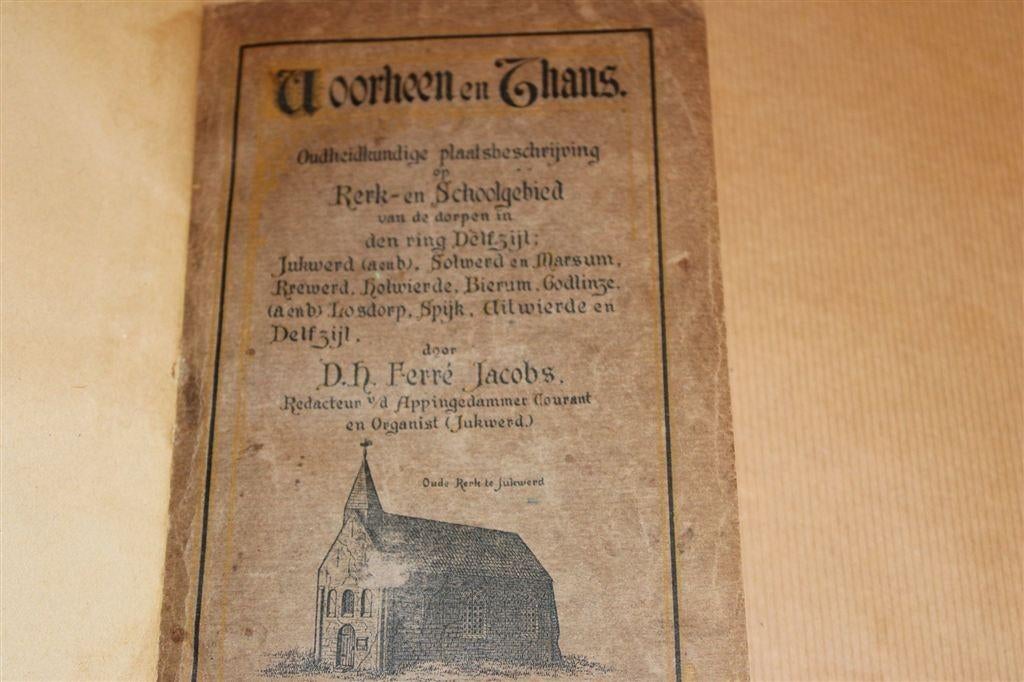 Voorheen en Thans.
Oudheidkundige plaatsbeschrijving
op
Kerk- en Schoolgebied
van de dorpen in
den ring Delfzijl;
Jukwerd (a en b), Solwerd en Marsum,
Krewerd, Holwierde, Bierum, Godlinze,
(a en b) Losdorp, Spijk, Uitwierde en
Delfzijl,
door
D. H. Ferré Jacobs,
Redacteur v/d Appingedammer Courant
en Organist (Jukwerd.)
Oude Kerk te Jukwerd